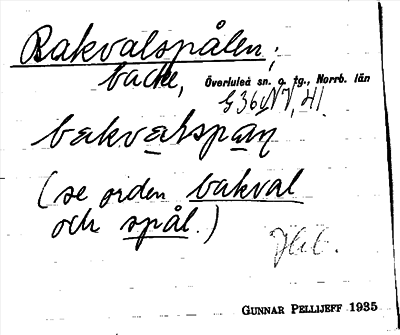 Bakvalspålen;
backe, Överluleå sn. o. tg., Norrb. län
bakvalspan
(se orden bakval
och spål.)
GUNNAR PELLIJEFF 1935